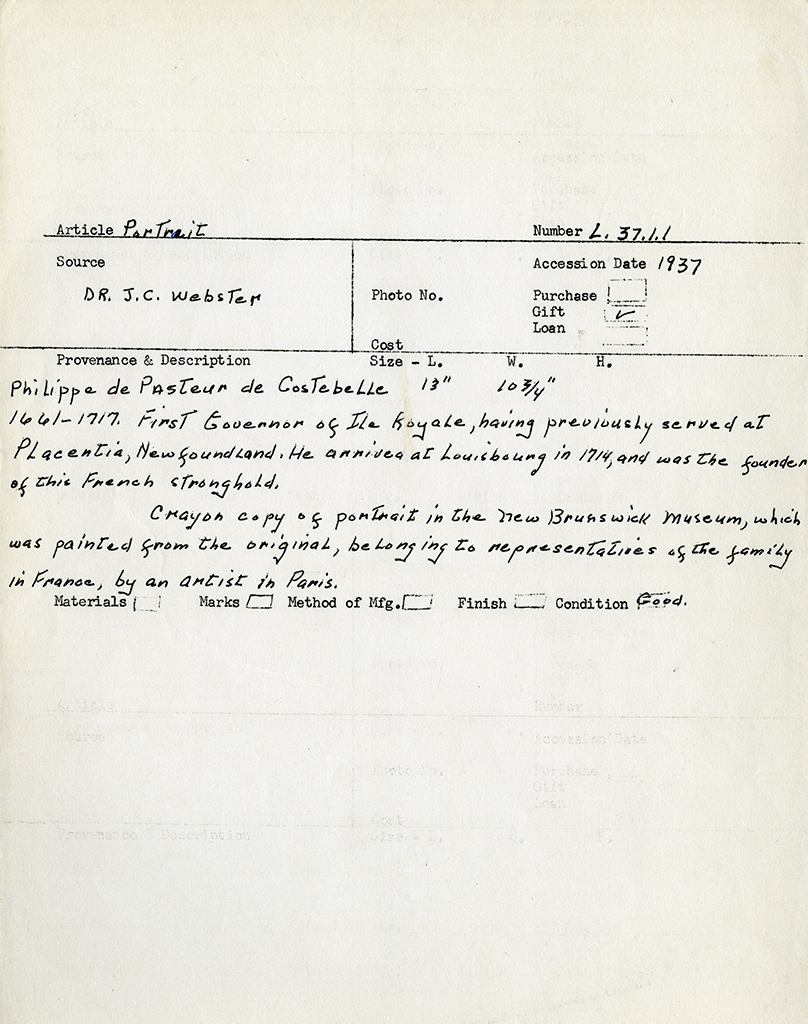 Article Portrait Number L. 37.1.1
Source Accession Date 1937
DR. J.C. Webster Photo No. Purchase
Gift ✓
Loan
Cost
Provenance & Description Size - L. W. H.
Philippe de Pasteur de Costebelle 13" 10 3/4"
1661-1717. First Governor of Ile Royale, having previously served at
Placentia, Newfoundland. He arrived at Louisbourg in 1714, and was the founder
of this French stronghold.
Crayon copy of portrait in the New Brunswick Museum, which
was painted from the original, belonging to representatives of the family
in France, by an artist in Paris.
Materials Marks Method of Mfg. Finish Condition Good.